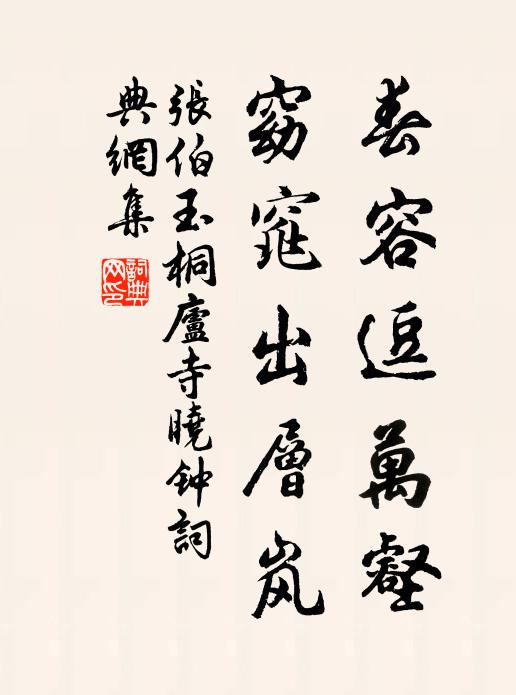 春容逗萬壑
窈窕出層岚
張伯玉桐廬寺曉钟詞
典網集
詞典
网印